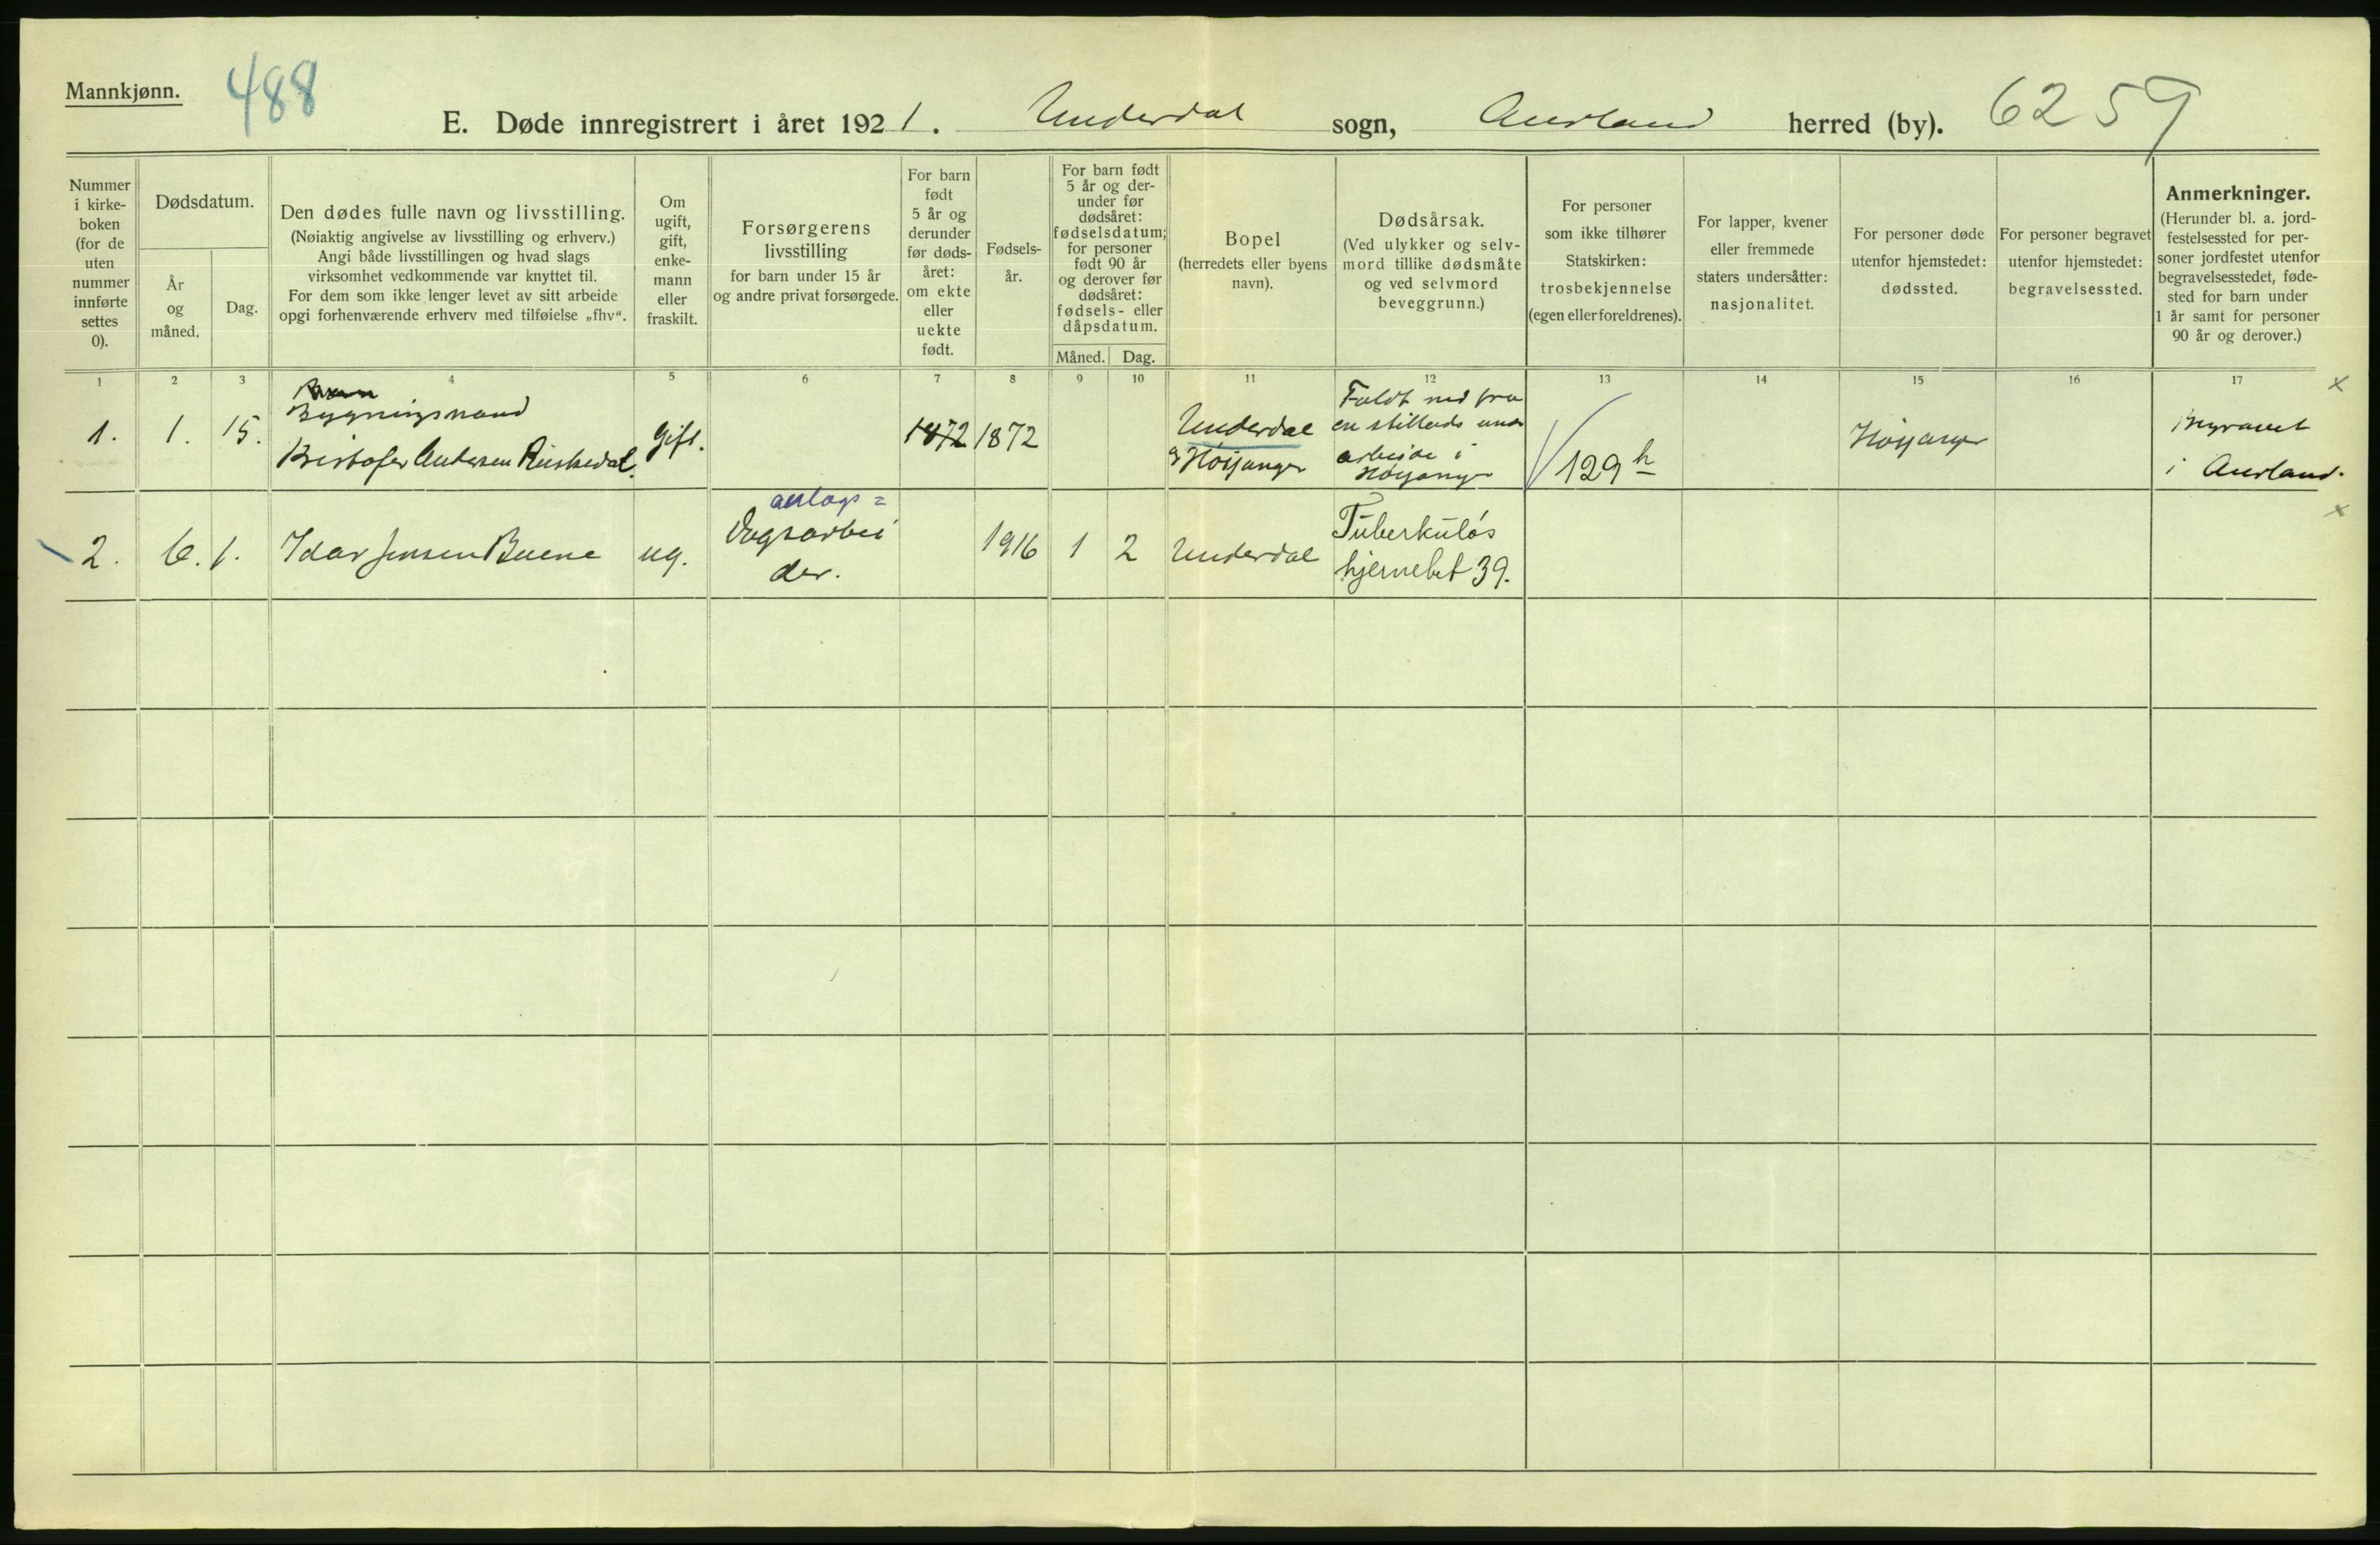 Mannkjønn.
488
E. Døde innregistrert i året 1921. Underdal sogn, Aurland herred (by). 6259
Nummer
i kirke-
boken
(for de
uten
nummer
innførte
settes
0).
Dødsdatum.
År
og
måned.
Dag.
Den dødes fulle navn og livsstilling.
(Nøiaktig angivelse av livsstilling og erhverv.)
Angi både livsstillingen og hvad slags
virksomhet vedkommende var knyttet til.
For dem som ikke lenger levet av sitt arbeide
opgi forhenværende erhverv med tilføielse „fhv“.
Om
ugift,
gift,
enke-
mann
eller
fraskilt.
Forsørgerens
livsstilling
for barn under 15 år
og andre privat forsørgede.
For barn
født
5 år og
derunder
før døds-
året:
om ekte
eller
uekte
født.
Fødsels-
år.
For barn født
5 år og der-
under før
dødsåret:
fødselsdatum;
for personer
født 90 år
og derover før
dødsåret:
fødsels- eller
dåpsdatum.
Måned. Dag.
Bopel
(herredets eller byens
navn).
Dødsårsak.
(Ved ulykker og selv-
mord tillike dødsmåte
og ved selvmord
beveggrunn.)
For personer
som ikke tilhører
Statskirken:
trosbekjennelse
(egen eller foreldrenes).
For lapper, kvener
eller fremmede
staters undersåtter:
nasjonalitet.
For personer døde
utenfor hjemstedet:
dødssted.
For personer begravet
utenfor hjemstedet:
begravelsessted.
Anmerkninger.
(Herunder bl. a. jord-
festelsessted for per-
soner jordfestet utenfor
begravelsesstedet, føde-
sted for barn under
1 år samt for personer
90 år og derover.)
1 2 3 4 5 6 7 8 9 10 11 12 13 14 15 16 17
1. 1. 15.
Bygningsmand
Andersen
Gift.
1872 1872
Underdal
Høyanger
Faldt ned fra
en stillads under
arbeide i
Høyanger
129 h
Høyanger
Begravet
i Aurland.
2. 6. 1. Idar Jensen Buene ug.
anlags=
Dagsarbei
der.
1916 1 2 Underdal
Tuberkuløs
hjernebet 39.